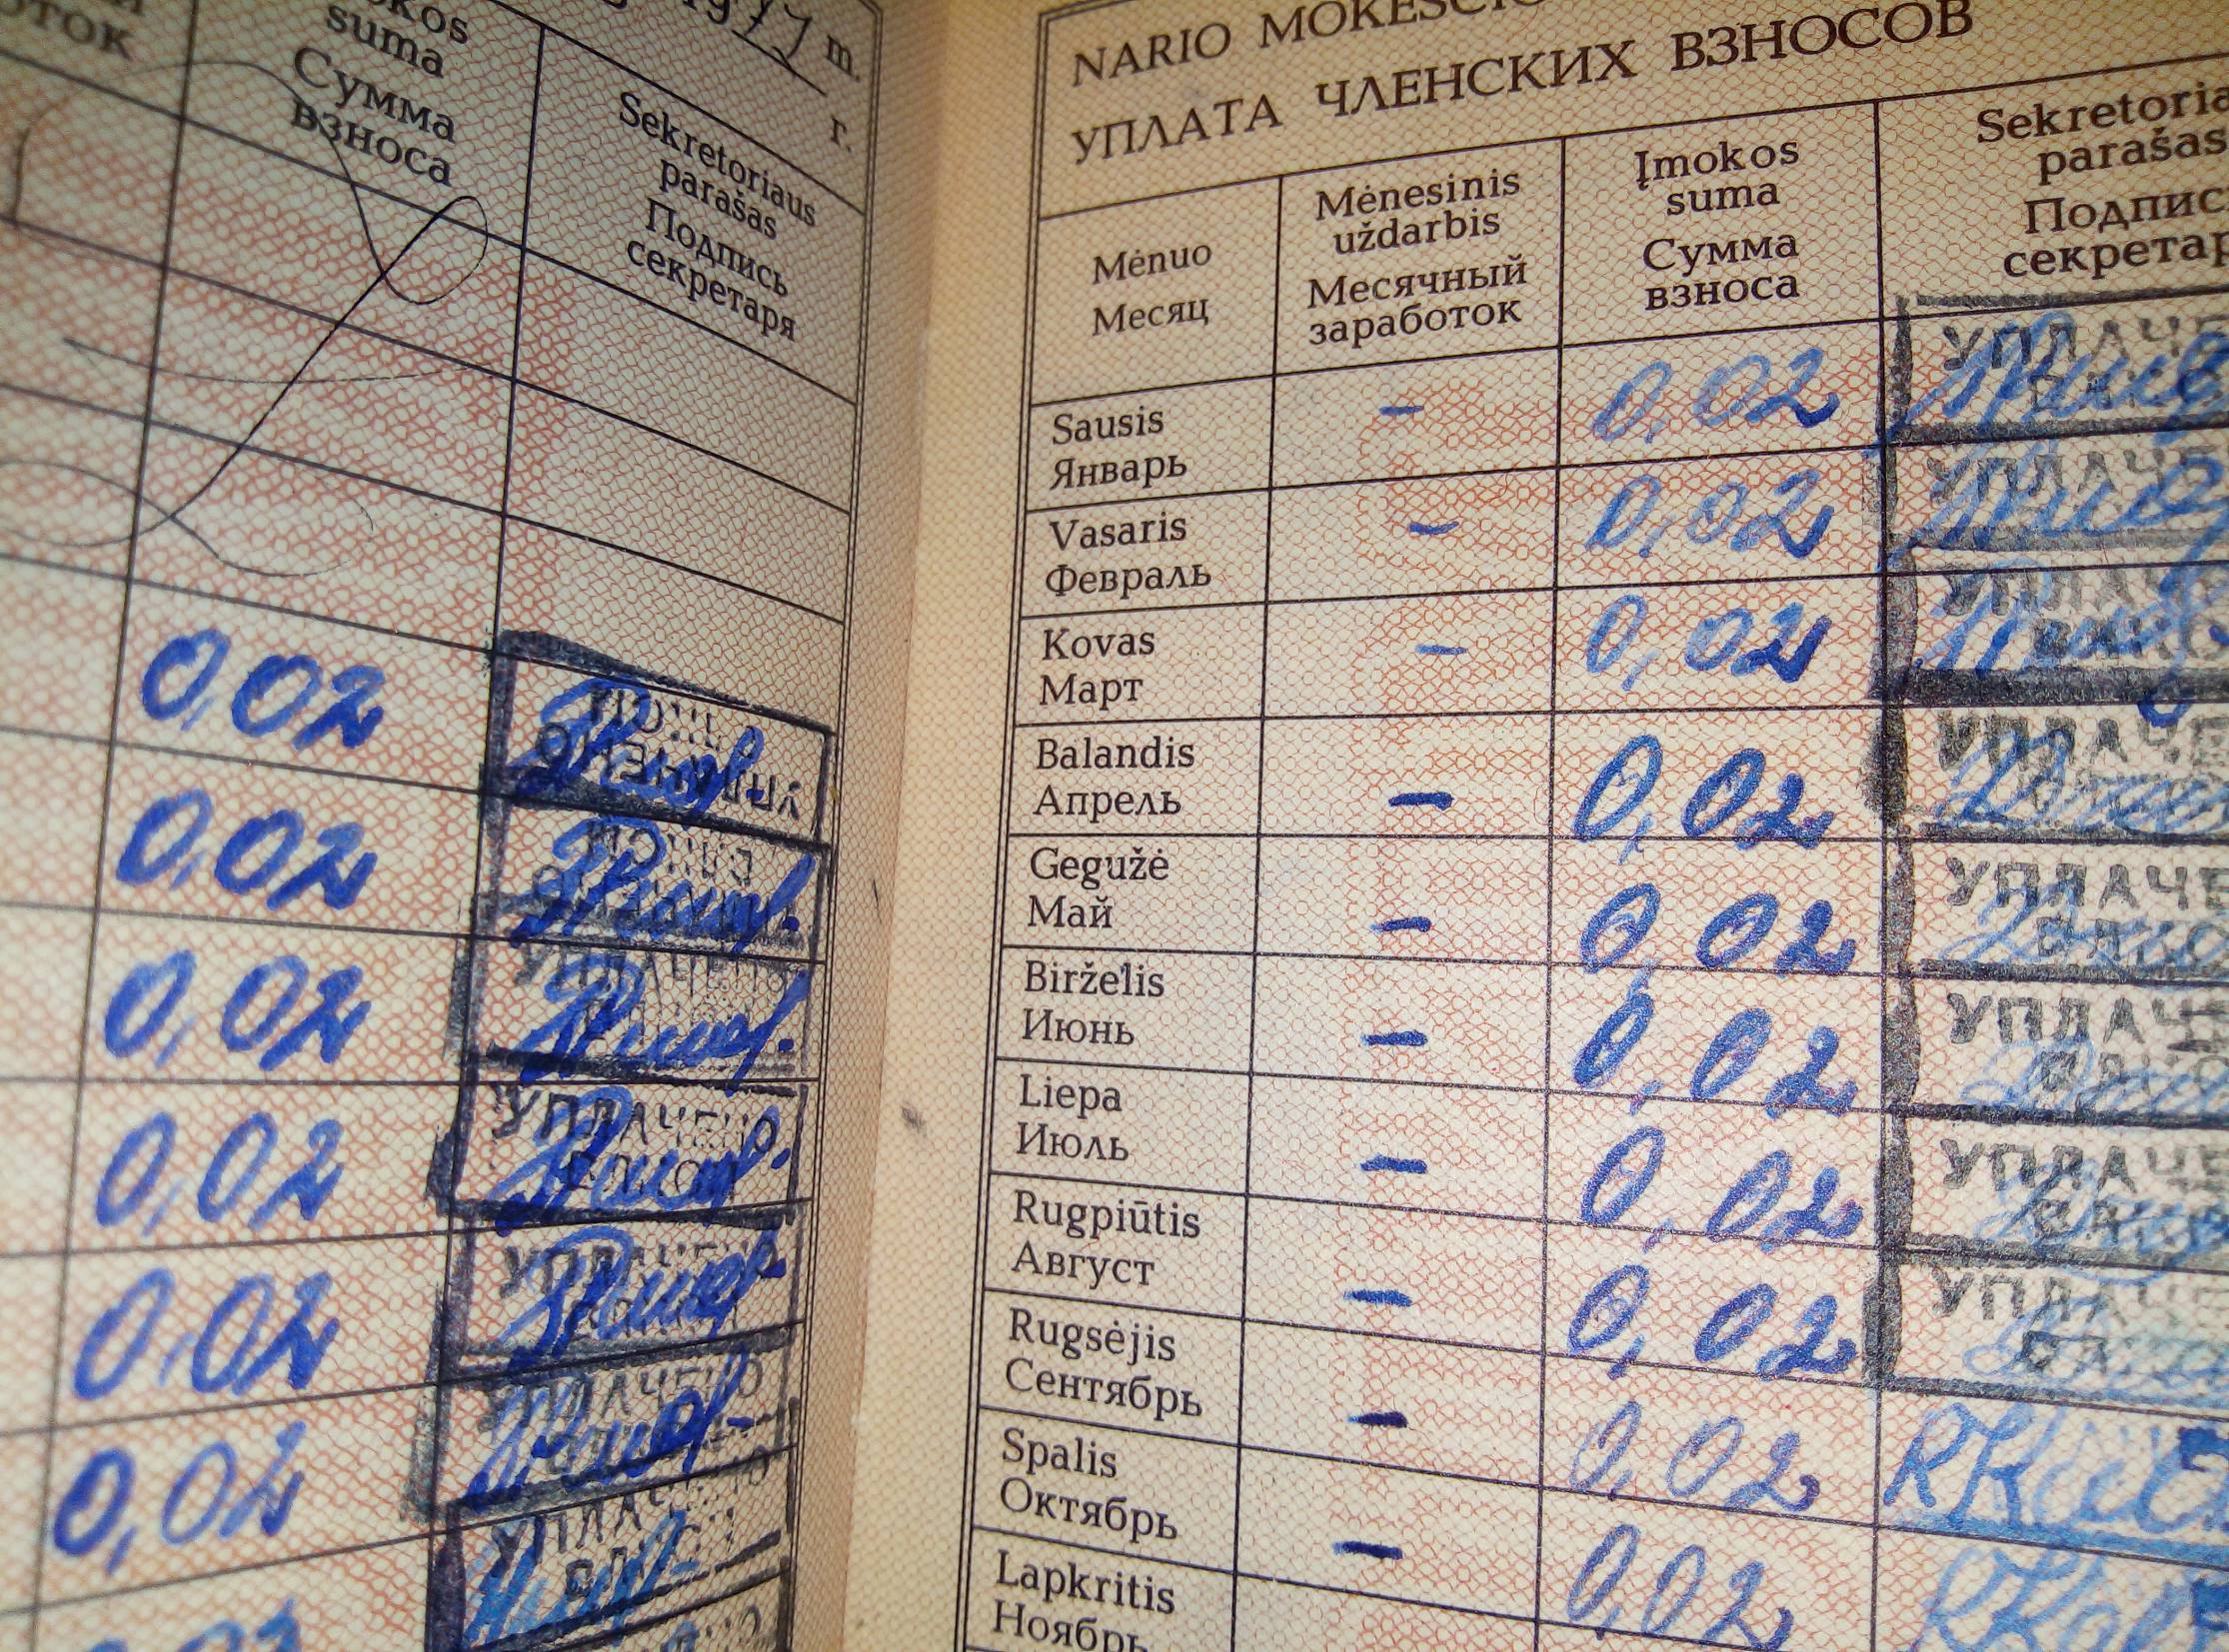 ОТОК
suma
Сумма
взноса
1977 m.
г.
Sekretoriaus
parašas
Подпись
секретаря
0,02
0,02
0,02
УПЛАЧЕНО
0,02
УПЛАЧЕНО
0,02
УПЛАЧЕНО
0,02
УПЛАЧЕНО
NARIO
УПЛАТА ЧЛЕНСКИХ ВЗНОСОВ
Mėnuo
Месяц
Mėnesinis
uždarbis
Месячный
заработок
Įmokos
suma
Сумма
взноса
Sekretoria
parašas
Подпис
секретар
Sausis
Январь
– 0,02
УПЛАЧЕ
Vasaris
Февраль
– 0,02
УПЛАЧЕ
Kovas
Март
– 0,02
УПЛАЧЕ
Balandis
Апрель
– 0,02
УПЛАЧЕ
Gegužė
Май
– 0,02
УПЛАЧЕ
Birželis
Июнь
– 0,02
УПЛАЧЕ
Liepa
Июль
– 0,02
УПЛАЧЕ
Rugpiūtis
Август
– 0,02
УПЛАЧЕ
Rugsėjis
Сентябрь
– 0,02
Spalis
Октябрь
– 0,02
Lapkritis
Ноябрь